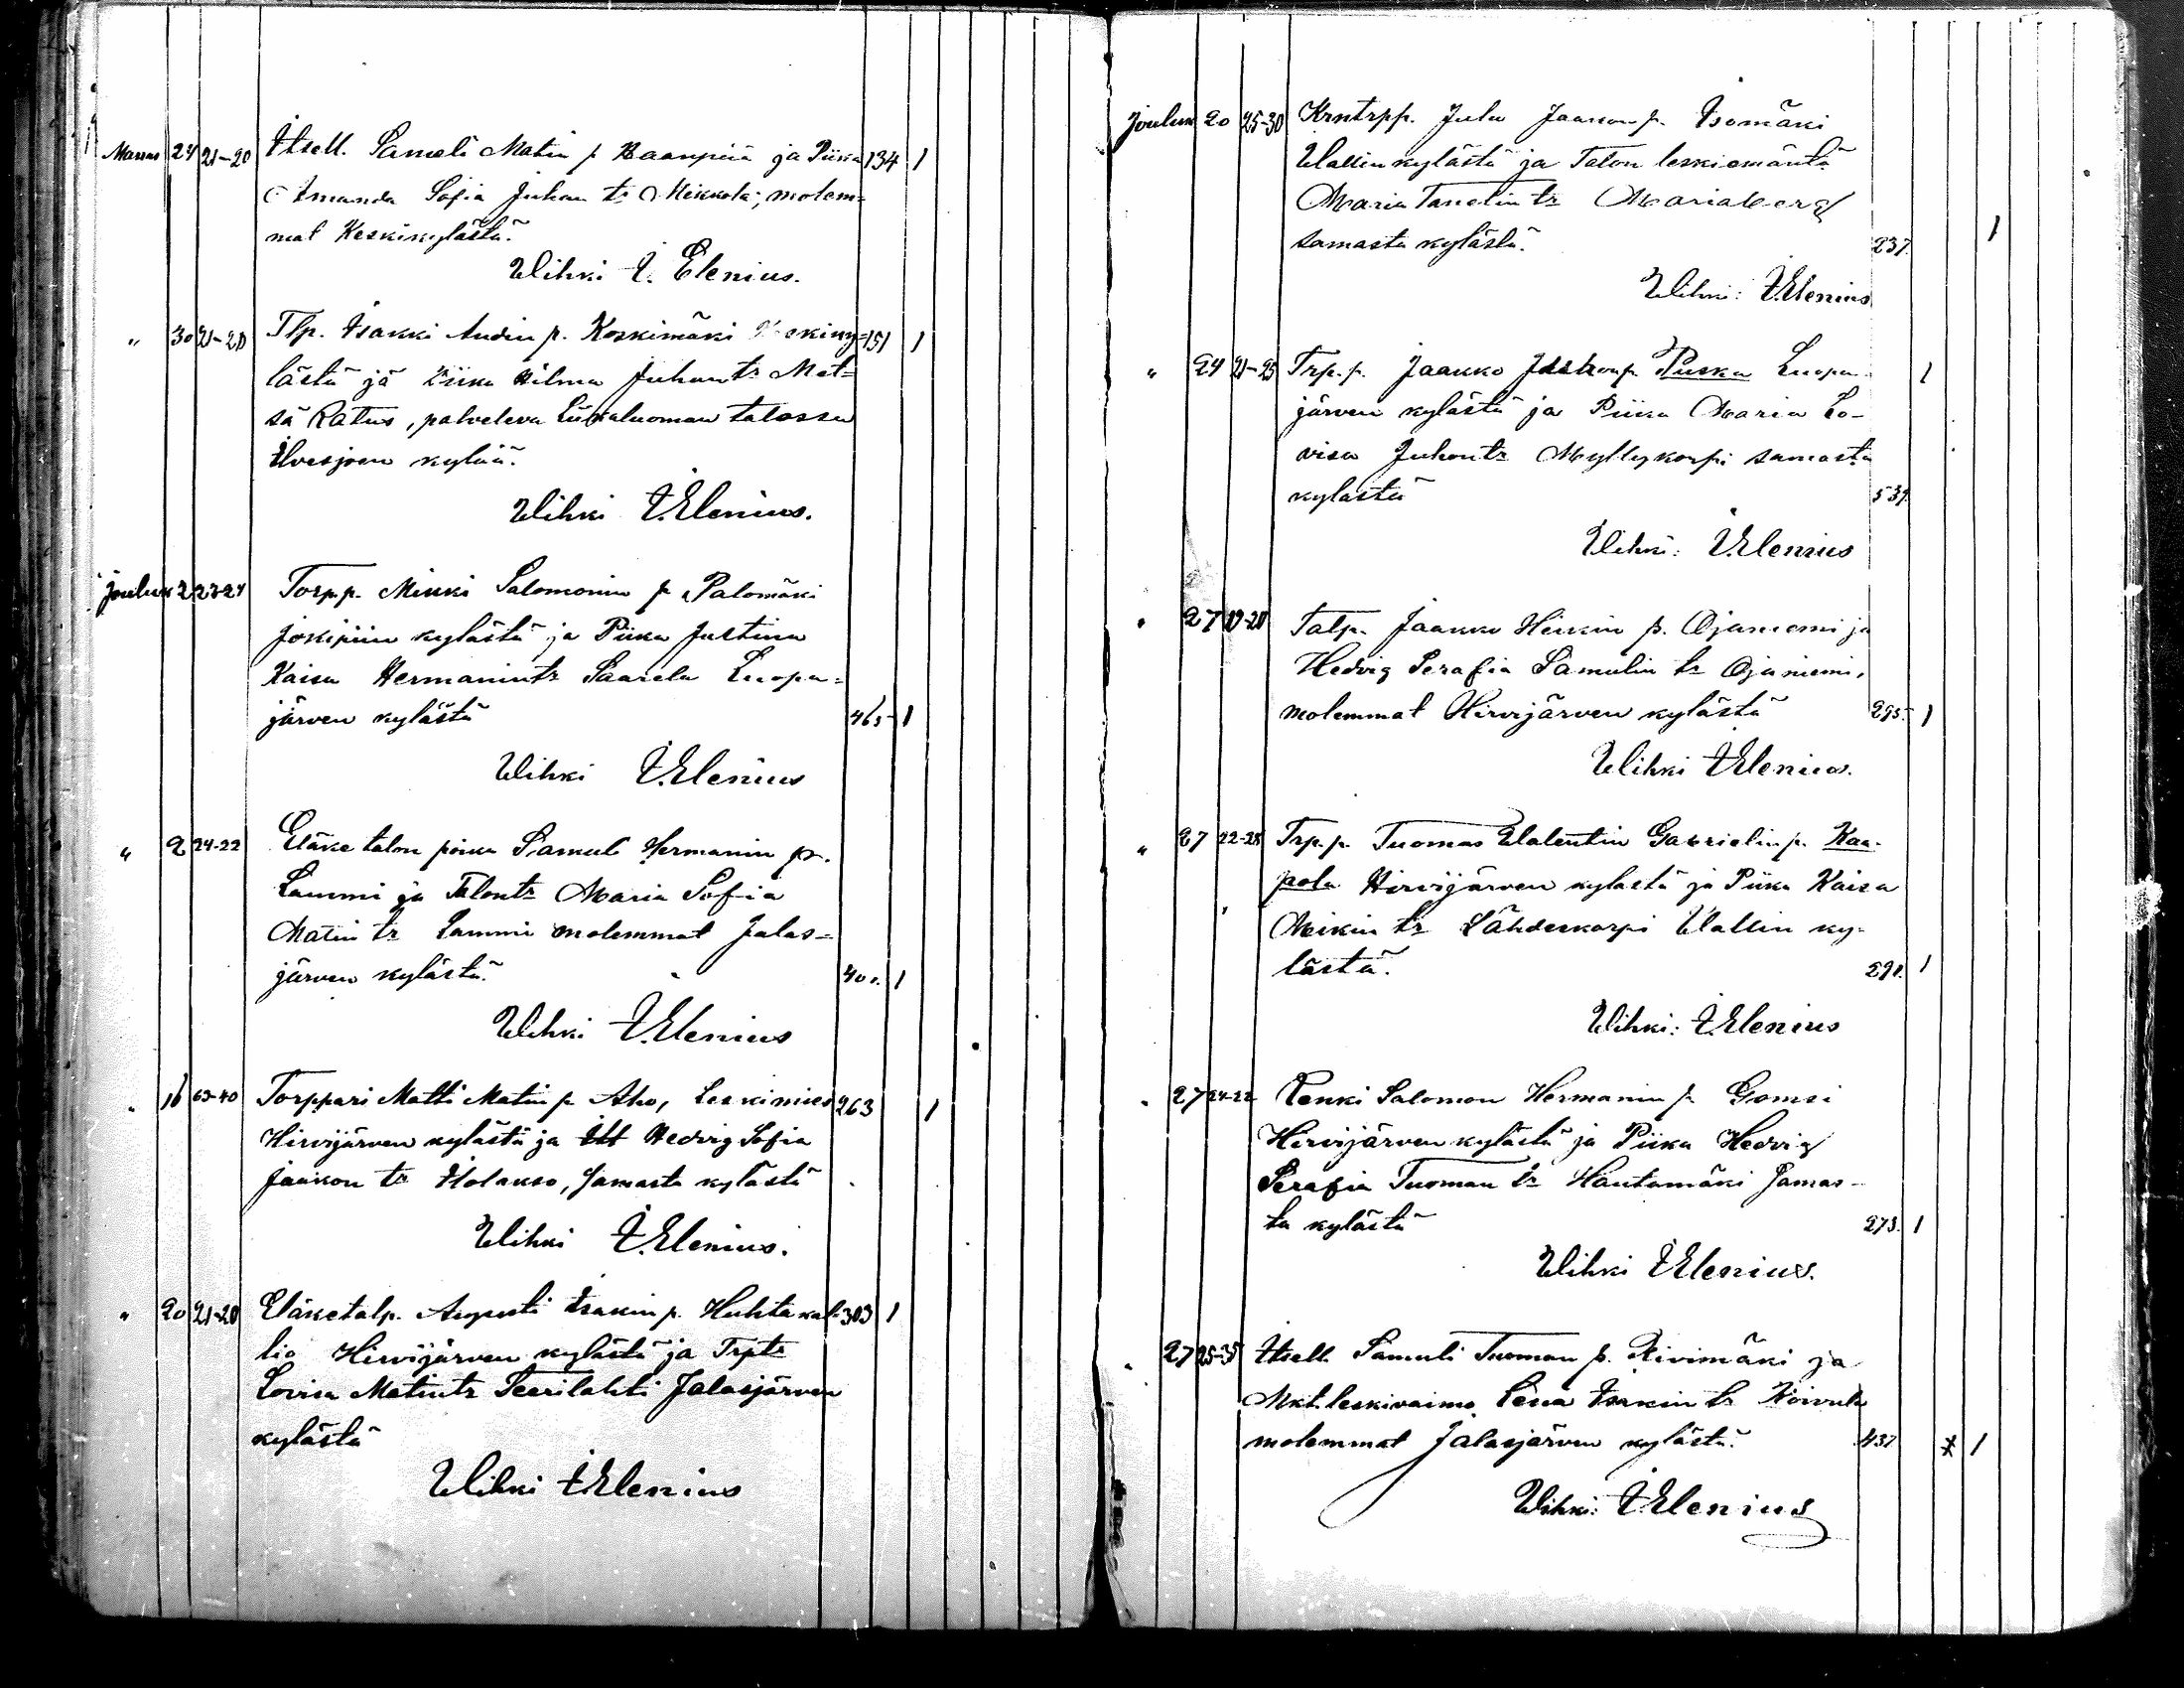 Marras 24 21-20 Itsell. Sameli Matin p Kaanpää ja Piika 134 1
Amanda Sofia Juhan tr Mikkola, molem=
mat Keskikylästä.
Wihki I. Elenius.
" 30 21-20 Tlp. Isakki Andin p. Koskimäki Keskiky= 151 1
lästä ja Piika Hilma Juhan tr Met=
sä Ratus, palveleva Liikaluoman talossa
Ilvesjoen kylää.
Wihki I. Elenius.
Jouluk 2 23-24 Torp.p. Mikki Salomonin p Palomäki
Jokipiin kylästä ja Piika Justina
Kaisa Hermanin tr Saarela Luopa=
järven kylästä 465 1
Wihki I. Elenius
" 2 24-22 Eläke talon poika Samuli Hermanin p.
Lammi ja Talontr Maria Sofia
Matin tr Lammi molemmat Jalas=
järven kylästä. 40 1
Wihki I. Elenius
" 16 63-40 Torppari Matti Matin p Aho, Leskimies 263 1
Hirvijärven kylästä ja Itt Hedvig Sofia
Jaakon tr Holakso, samasta kylästä
Wihki I. Elenius.
" 20 21-20 Eläketalp. Augusti Isakin p. Huhtakal= 303 1
lio Hirvijärven kylästä ja Trptr
Lovisa Matintr Teerilahti Jalasjärven
kylästä
Wihki I. Elenius
Jouluk 20 25-30 Krntrpp. Juho Jaakon p. Isomäki
Wallin kylästä ja Talon leskiemäntä
Maria Tanelin tr Mariaberg
samasta kylästä. 237. 1
Wihki: I. Elenius
" 24 21-23 Trp.p. Jaakko Jaakon p. Puska Luopa- 1
järven kylästä ja Piika Maria Lo-
visa Juhontr Myllykorpi samasta
kylästä 539.
Wihki: I. Elenius
" 27 19-20 Talp. Jaakko Heikin p. Ojaniemi ja
Hedvig Serafia Samulin tr Ojaniemi,
molemmat Hirvijärven kylästä 295. 1
Wihki I. Elenius.
" 27 22-28 Trp.p. Tuomas Walentin Gabrielin p. Kaa-
pola Hirvijärven kylästä ja Piika Kaisa
Mikin tr Lähdeskorpi Wallin ky-
lästä. 291. 1
Wihki: I. Elenius
" 27 24-22 Renki Salomon Hermanin p Gomsi
Hirvijärven kylästä ja Piika Hedvig
Serafia Tuoman tr Hautamäki samas-
ta kylästä 273. 1
Wihki I. Elenius.
" 27 25-35 Itsell. Samuli Tuoman p. Kivimäki ja
Mkt. leskivaimo Leena Isakin tr Koivula
molemmat Jalasjärven kylästä. 437 x 1
Wihki: I. Elenius